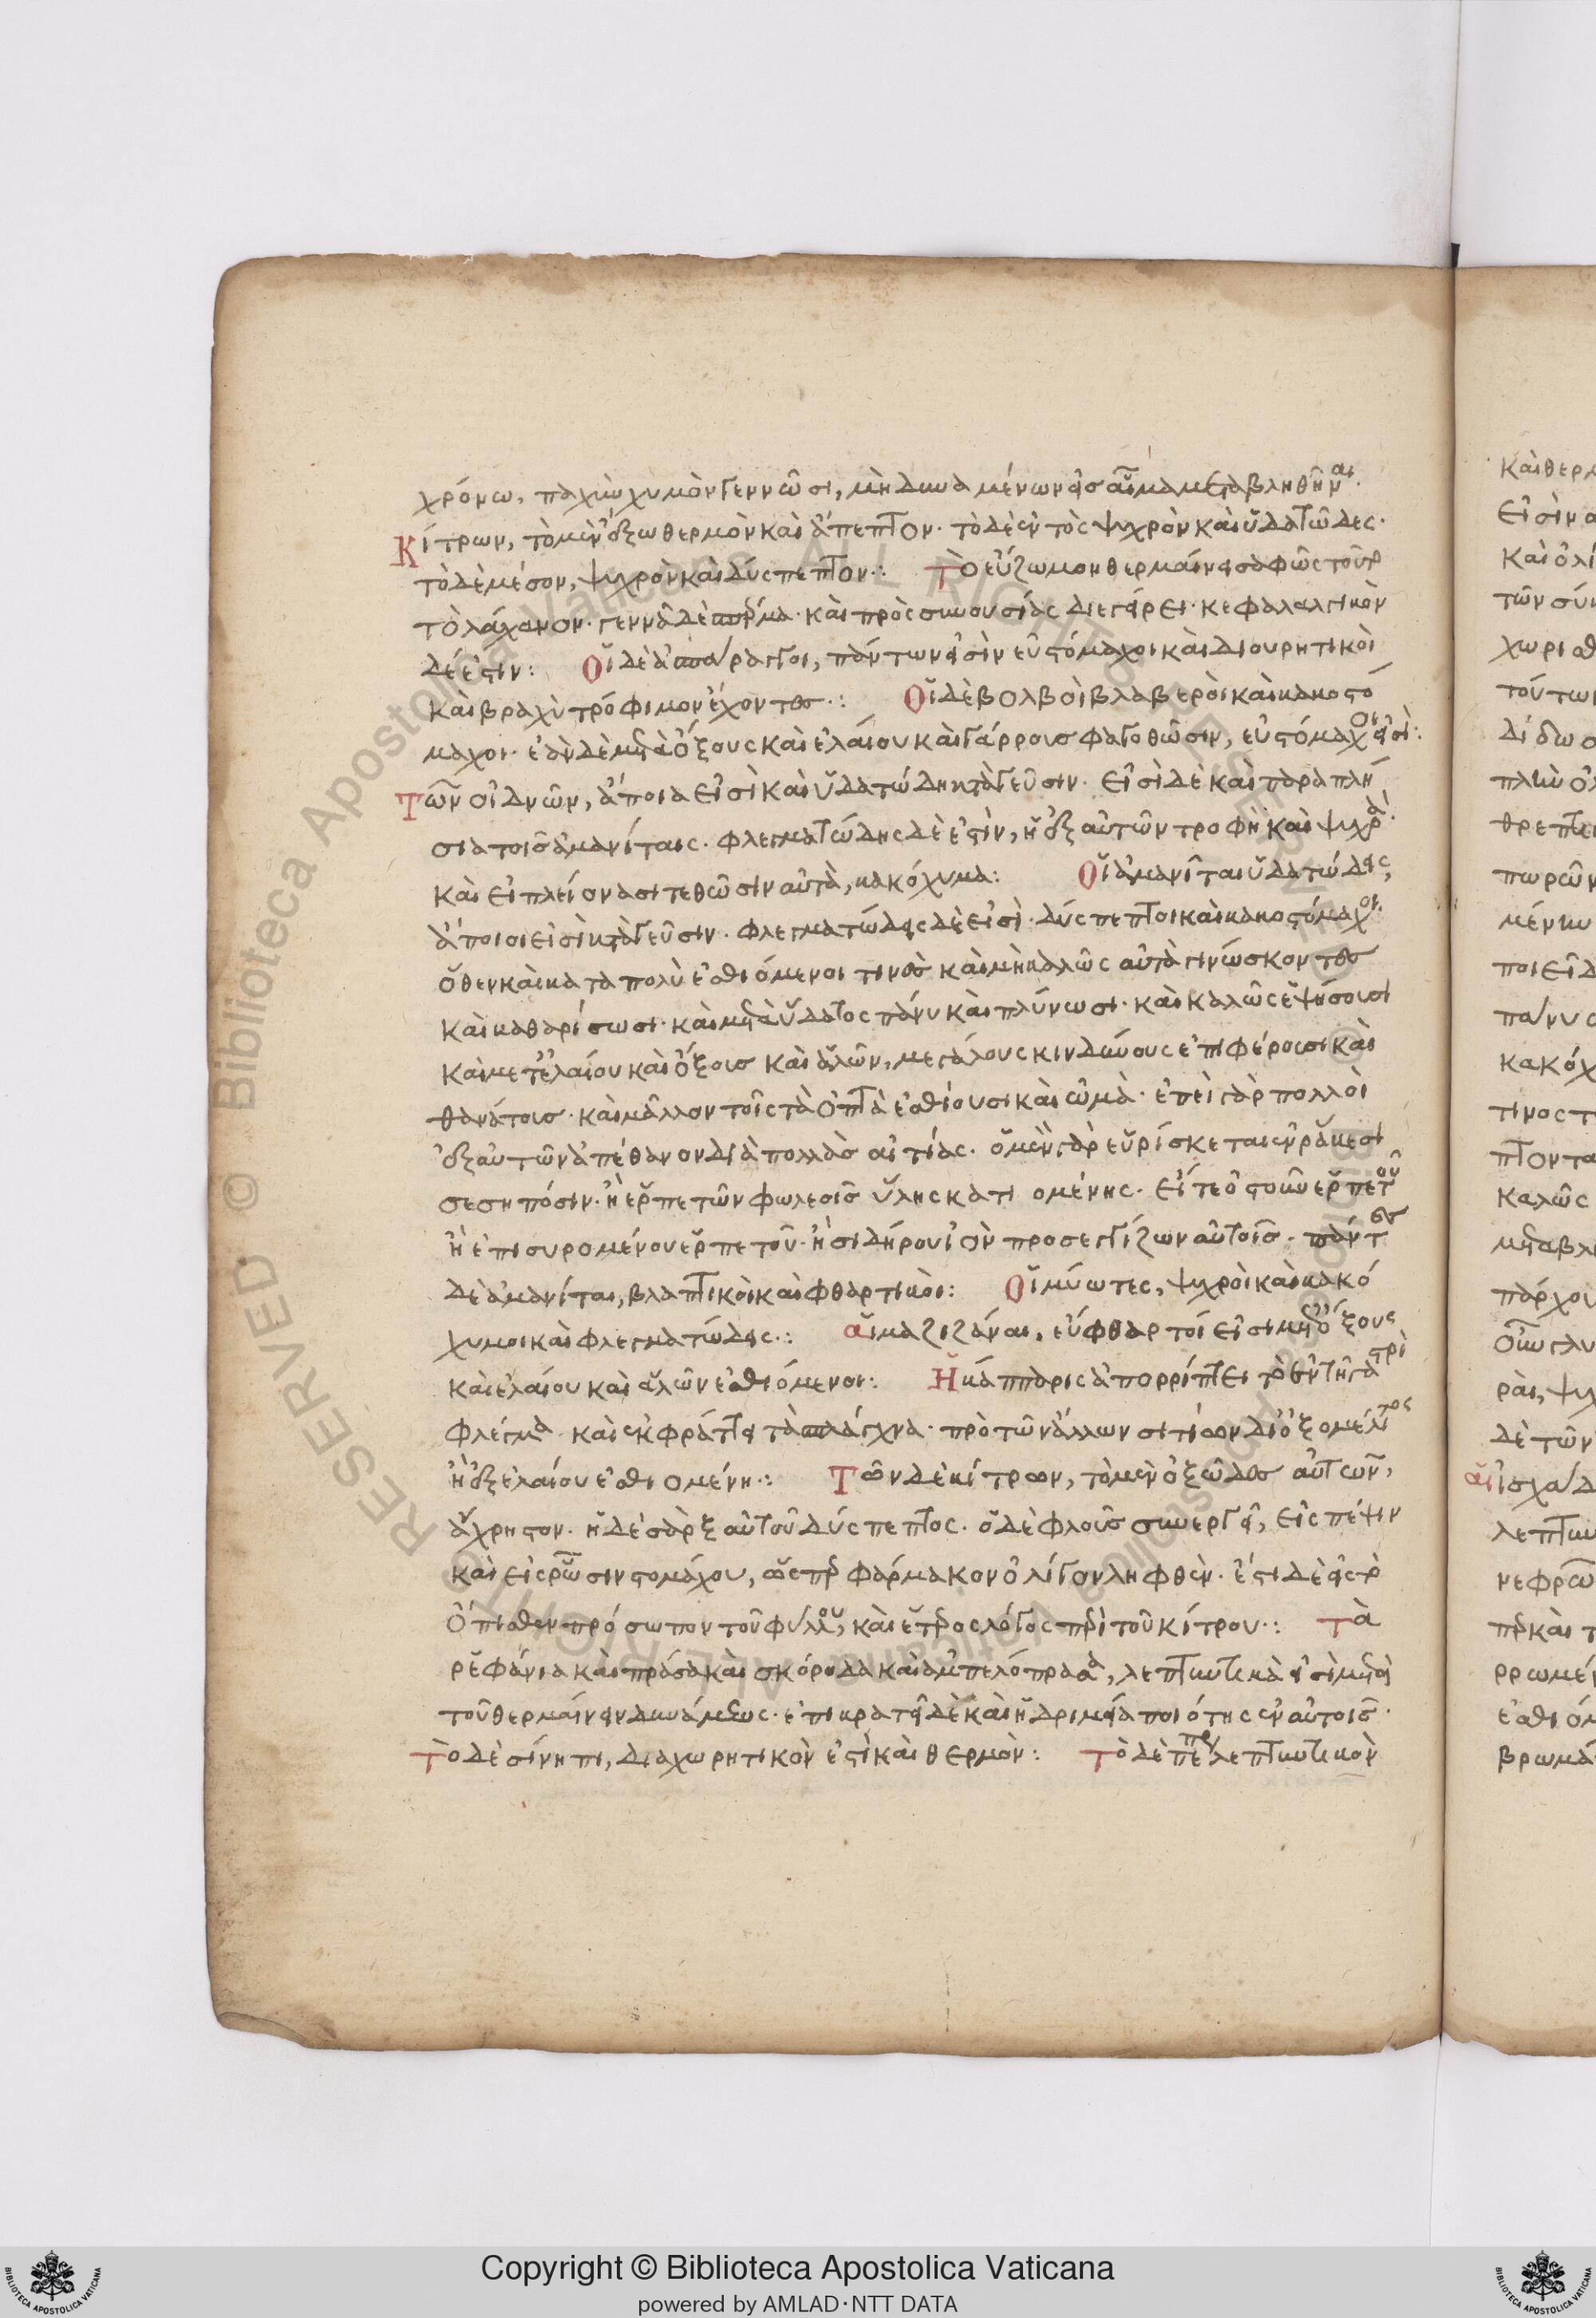 χρόνω, παχὺν χυμὸν γεννῶσι, μὴ δυναμένων εἰς αἷμα μεταβληθῆναι·
Κίτρων, τὸ μὲν ἔξω θερμὸν καὶ ἄπεπτον· τὸ δὲ ἐντὸς ψυχρὸν καὶ ὑδατῶδες·
τὸ δὲ μέσον, ψυχρὸν καὶ δύσπεπτον:· Τὸ εὔζωμον θερμαίνει σαφῶς τοῦτο
τὸ λάχανον· γεννᾶ δὲ σπέρμα· καὶ πρὸς συνουσίας διεγείρει· κεφαλαλγικὸν
δέ ἐστιν: Οἱ δὲ ἀσπάραγγοι, πάντων εἰσὶν εὐστόμαχοι καὶ διουρητικοὶ
καὶ βραχὺ τρόφιμον ἔχοντες:· Οἱ δὲ βολβοὶ βλαβεροὶ καὶ κακοστό
μαχοι· ἐὰν δὲ μετὰ ὄξους καὶ ἐλαίου καὶ γάρρους φαγοθῶσιν, εὐστόμαχοι εἰσί:
Τῶν οἰδνῶν, ἄποια εἰσὶ καὶ ὑδατώδη κατὰ γεῦσιν· εἰσὶ δὲ καὶ παραπλή
σια τοῖς ἀμανίταις· φλεγματώδης δὲ ἐστὶν, ἡ ἐξ αὐτῶν τροφὴ καὶ ψυχρά·
καὶ εἰ πλείονα σιτεθῶσιν αὐτὰ, κακόχυμα: Οἱ ἀμανῖται ὑδατώδεις,
ἄποιοι εἰσὶ κατὰ γεῦσιν· φλεγματώδεις δὲ εἰσὶ· δύσπεπτοι καὶ κακοστόμαχοι·
ὅθεν καὶ κατὰ πολὺ ἐσθιόμενοι τινὲς καὶ μὴ καλῶς αὐτὰ γινώσκοντες
καὶ καθαρίσωσι· καὶ μετὰ ὕδατος πάνυ καὶ πλύνωσι· καὶ καλῶς ἑψήσουσι
καὶ μετ' ἐλαίου καὶ ὄξους καὶ ἁλῶν, μεγάλους κινδύνους ἐπιφέρουσι καὶ
θανάτους· καὶ μᾶλλον τοῖς τὰ ὀπτὰ ἐσθίουσι καὶ ὠμὰ· ἐπεὶ γὰρ πολλοὶ
ἐξ αὐτῶν ἀπέθανον διὰ πολλὰς αἰτίας· ὁ μὲν γὰρ εὑρίσκεται ἐν ῥάκεσι
σεσηπόσιν· ἢ ἑρπετῶν φωλεοῖς ὕλης κατι ομένης· εἴτε ὀστοῦν ἑρπετοῦ
ἢ ἐπισυρομένου ἑρπετοῦ· ἢ σιδήρου ἰὸν προσεγγίζων αὐτοῖς· πάντες
δὲ ἀμανίται, βλαπτικοὶ καὶ φθαρτικοὶ: Οἱ μύωτες, ψυχροὶ καὶ κακό
χυμοι καὶ φλεγματώδεις:· αἱ μαζιζάναι, εὔφθαρτοί εἰσι μετὰ ὄξους
καὶ ἐλαίου καὶ ἁλῶν ἐσθιόμενοι: Ἡ κάππαρις ἀπορρίπτει τὸ ἐν τῇ γαστρὶ
φλέγμα καὶ ἐκφράττει τὰ σπλάγχνα· πρὸ τῶν ἄλλων σιτίων δι' ὀξομέλιτος
ἢ ἐξ ἐλαίου ἐσθιομένη:· Τῶν δὲ κίτρων, τὸ μὲν ὀξῶδες αὐτῶν,
ἄχρηστον· ἡ δὲ σὰρξ αὐτοῦ δύσπεπτος· ὁ δὲ φλοῦς συνεργεῖ, εἰς πέψιν
καὶ εἰς ῥῶσιν στομάχου, ὥσπερ φάρμακον ὀλίγον ληφθὲν· ἔστι δὲ εἰς τὸ
ὄπισθεν πρόσωπον τοῦ φύλλου, καὶ ἕτερος λόγος περὶ τοῦ κίτρου:· Τὰ
ῥεφάνια καὶ πράσα καὶ σκόροδα καὶ ἀμπελόπρασα, λεπτυντικὰ εἰσὶ μετὰ
τοῦ θερμαίνειν δυνάμεως· ἐπικρατεῖ δὲ καὶ ἡ δριμεῖα ποιότης ἐν αὐτοῖς·
Τὸ δὲ σίνηπι, διαχωρητικὸν ἐστὶ καὶ θερμὸν: Τὸ δὲ πέπερι λεπτυντικὸν
Copyright © Biblioteca Apostolica Vaticana
powered by AMLAD·NTT DATA